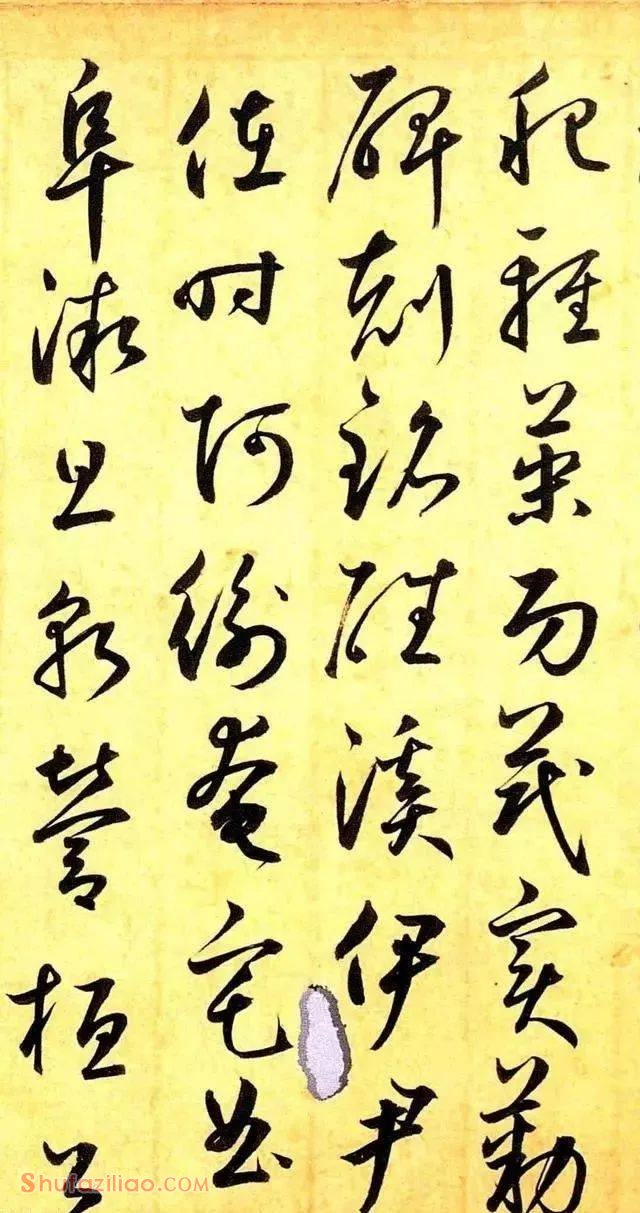 肥輕策功茂實勒
碑刻銘磻溪伊尹
佐時阿衡奄宅曲
阜微旦孰營桓公
Shufaziliao.COM